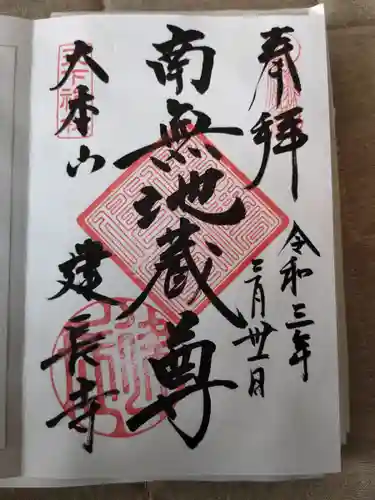 奉拝
令和三年
三月卅一日
南無地蔵尊
大本山
建長寺